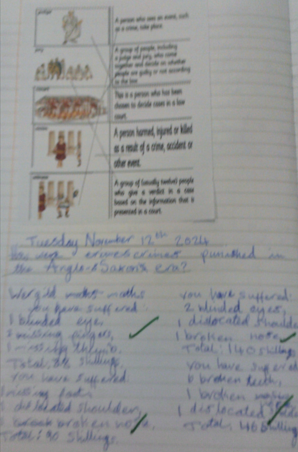 judge
A person who sees an event, such
as a crime, take place.
jury
A group of people, including
a judge and jury, who come
together and decide on whether
people are guilty or not according
to the law.
This is a person who has been
chosen to decide cases in a law
court.
A person harmed, injured or killed
as a result of a crime, accident or
other event.
A group of (usually twelve) people
who give a verdict in a case
based on the information that is
presented in a court.
Tuesday November 12th 2024
How were crimes punished in
the Anglo-Saxons era?
Wergild maths
you have suffered:
1 blinded eye,
missing fingers,
1 missing thumb.
Total: shillings.
you have suffered:
missing foot,
dislocated shoulder,
broken nose.
Total: 90 shillings.
you have suffered:
2 blinded eyes,
1 dislocated shoulder
1 broken nose.
Total: 140 shillings
you have suffered
6 broken teeth,
1 broken
1 dislocated
Total: 146 shillings